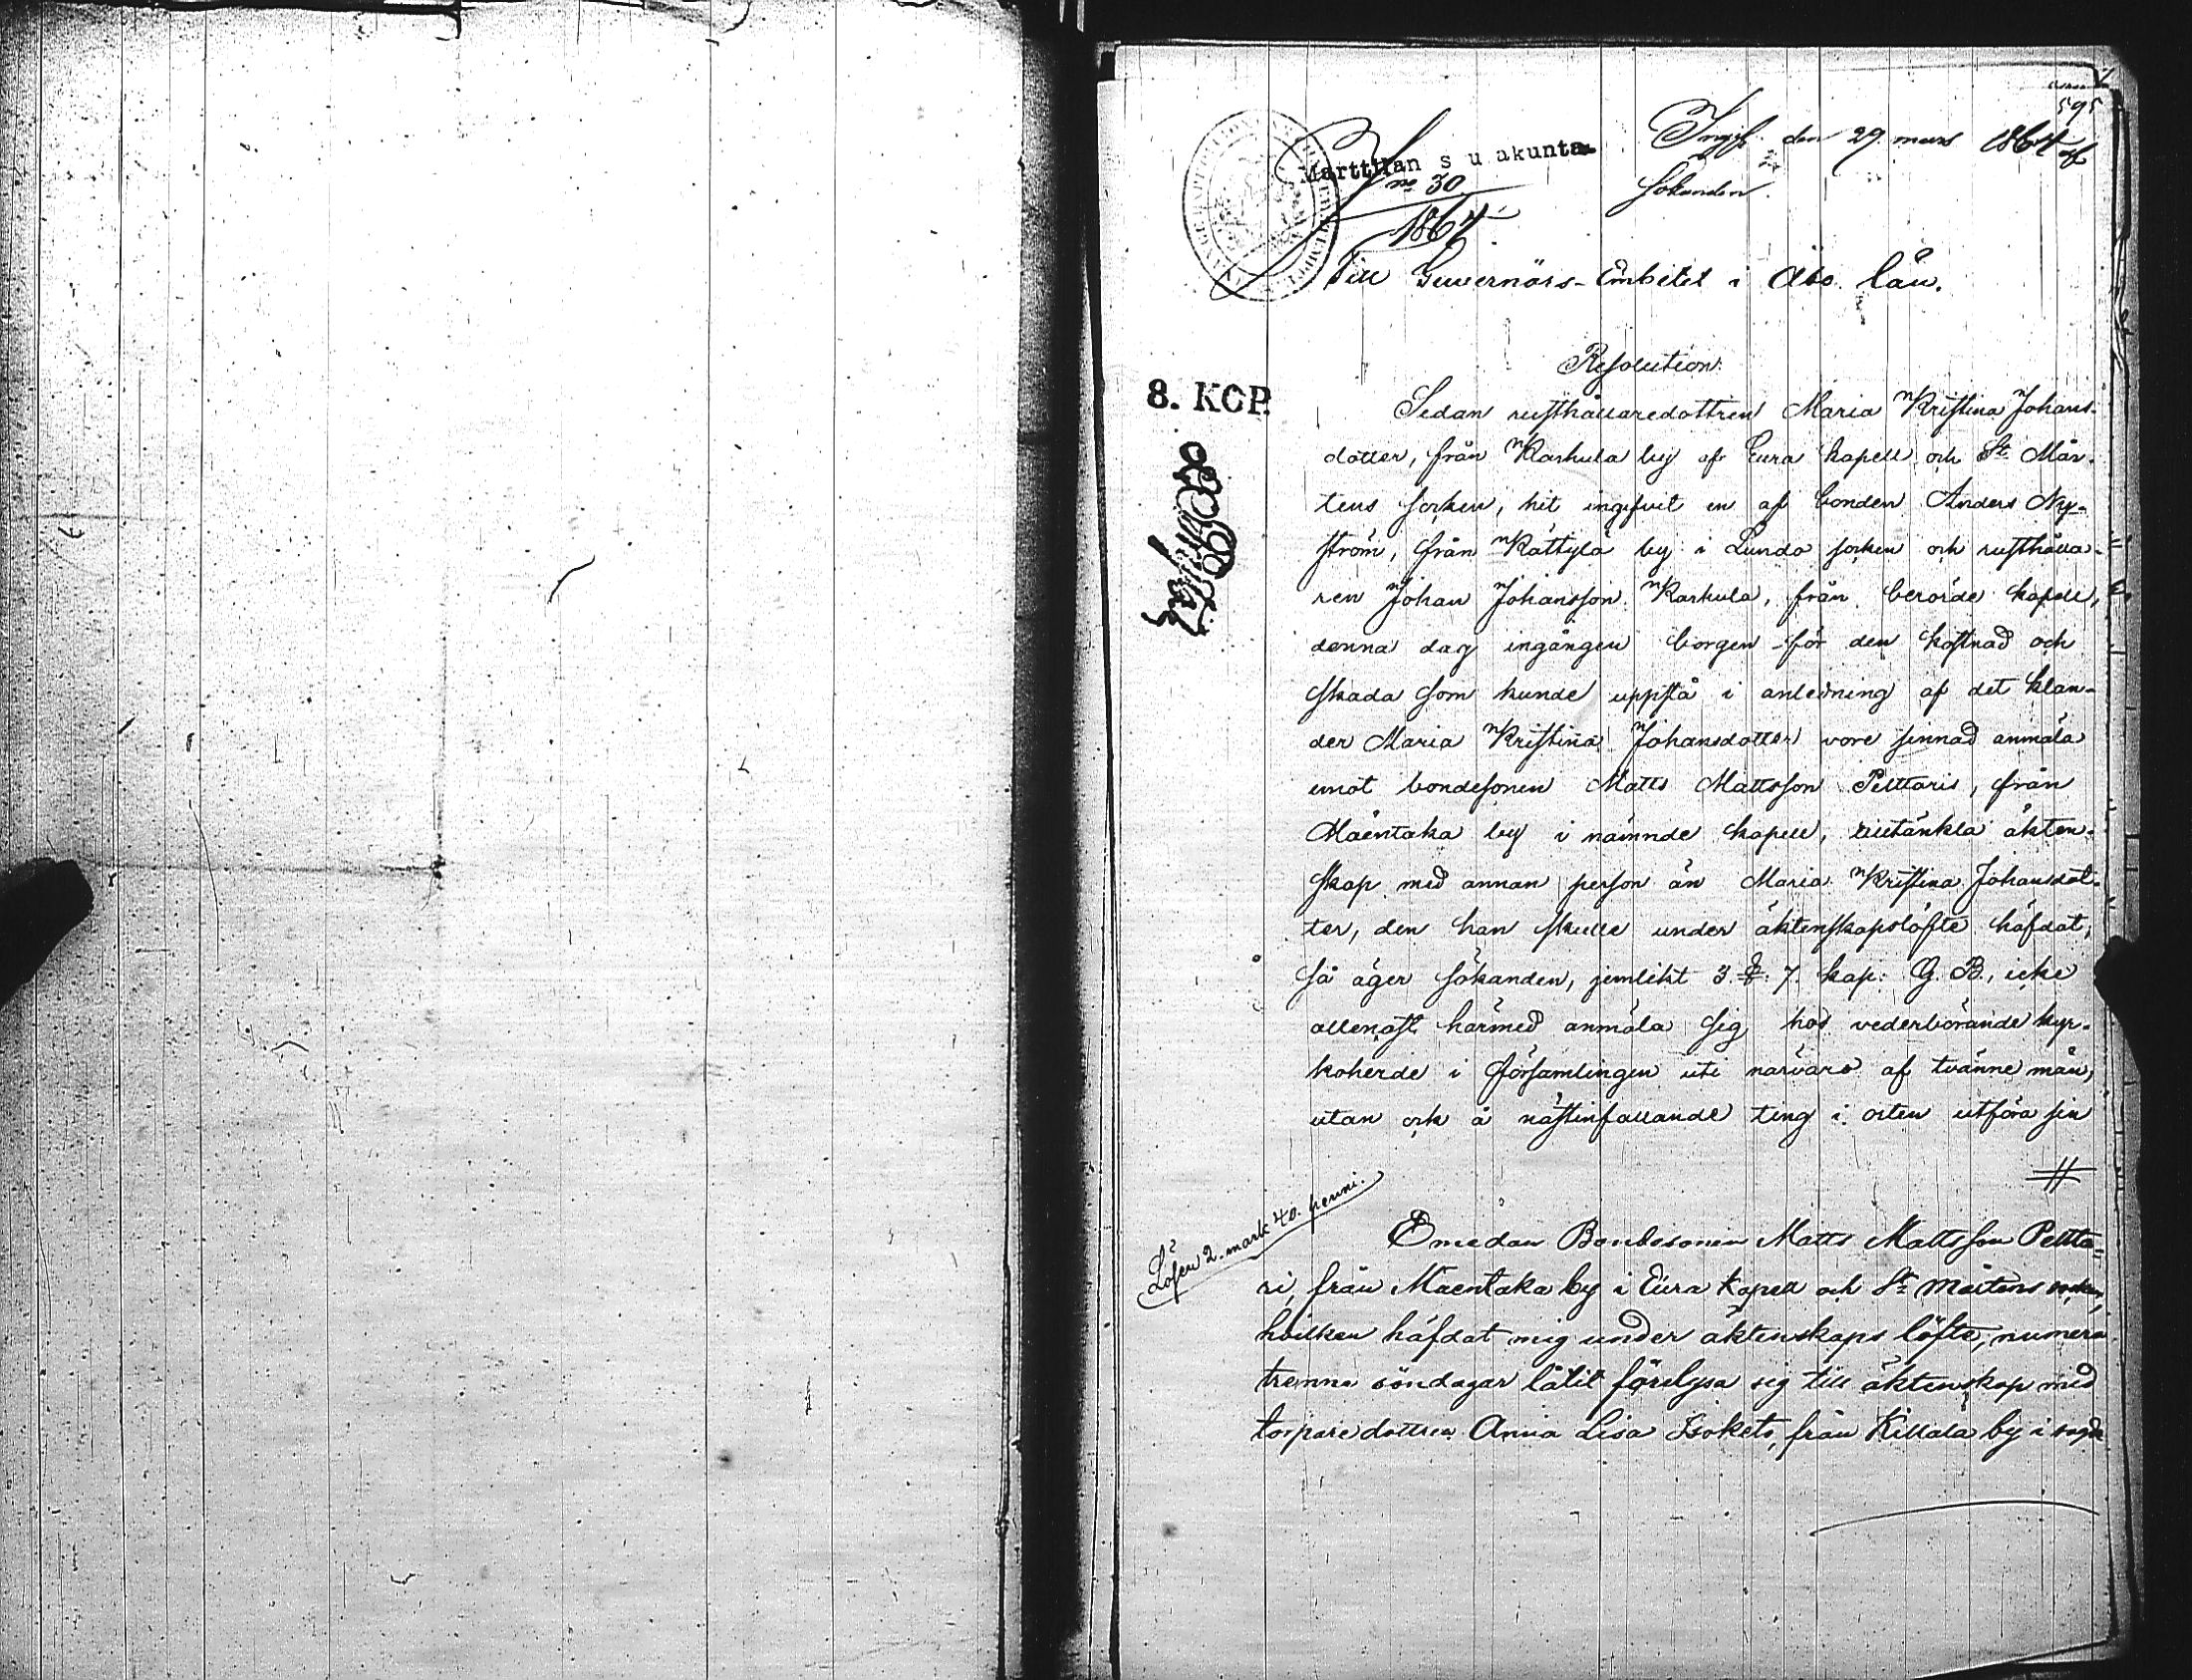 595
Ingif. den 29 mars 1864 af
Sökanden.
Marttilan s u akunta
no 30
1864
Till Guvernörs-Embetet i Åbo län.
Resolution.
8. KOP.
Sedan rusthållaredottren Maria Kristina Johans-
dotter, från Karhula by af Eura kapell och St Mår-
tens socken, hit ingifvit en af bonden Anders Ny-
ström, från Kättylä by i Lundo socken och rusthålla-
ren Johan Johansson Karhula, från berörde kapell,
denna dag ingången borgen för den kostnad och
skada som kunde uppstå i anledning af det klan-
der Maria Kristina Johansdotter vore sinnad anmäla
emot bondesonen Matts Mattsson Pelttaris, från
Mäentaka by i nämnde kapell, tilltänkta äkten-
skap med annan person än Maria Kristina Johansdot-
ter, den han skulle under äktenskapslöfte häfdat;
Så äger sökanden, jemlikt 3. §. 7. kap. G. B., icke
allenast härmed anmäla sig hos vederbörande kyr-
koherde i församlingen uti närvaro af tvänne män,
utan ock å nästinfallande ting i orten utföra sin
Lösen 2. mark 40. penni.
Emedan Bondesonen Matts Mattsson Peltta-
ri, från Mäentaka by i Eura kapell och St Mårtens socken,
hvilken häfdat mig under äktenskaps löfte, numera
trenne söndagar låtit förelysa sig till äktenskap med
torparedottren Anna Lisa Isoketo, från Killala by i sagde